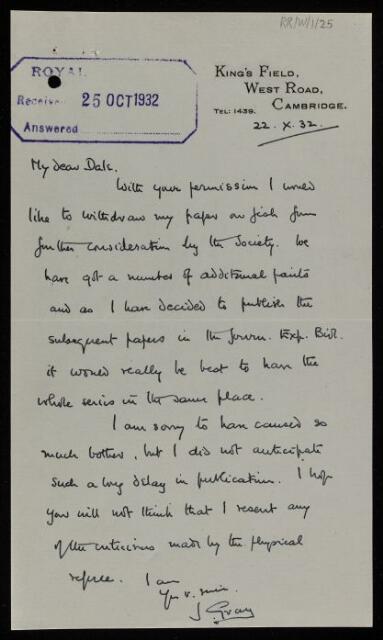 RR/W/1/25
KING'S FIELD,
WEST ROAD,
CAMBRIDGE.
TEL: 1439.
22. X. 32.
ROYAL
Received 25 OCT 1932
Answered
My dear Dale.
With your permission I would
like to withdraw my paper on fish from
further consideration by the Society. We
have got a number of additional points
and as I have decided to publish the
subsequent papers in the Journ. Exp. Biol.
it would really be best to have the
whole series in the same place.
I am sorry to have caused so
much bother, but I did not anticipate
such a long delay in publication. I hope
you will not think that I resent any
of the criticisms made by the physical
referee. I am
J Gray